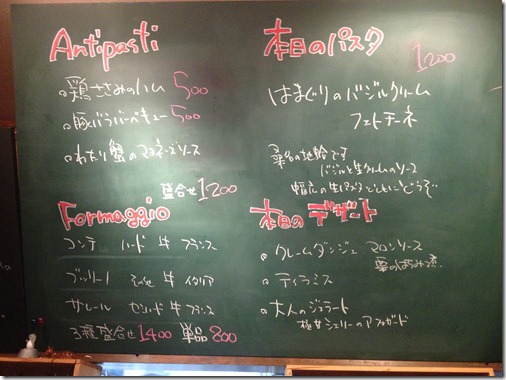 Antipasti
鶏ささみのハム 500
豚バラバーベキュー 500
わたり蟹のマヨネーズソース
盛合せ 1200
Formaggio
コンテ ハード 牛 フランス
牛 イタリア
サレール セミハード 牛 フランス
3種盛合せ 1400 単品 800
本日のパスタ 1200
はまぐりのバジルクリーム
フェトチーネ
桑名の地蛤です
バジルと生クリームのソース
幅広の生パスタとどうぞ
本日のデザート
クレームダンジュ マロンソース
栗のはちみつ
ティラミス
大人のジェラート
極甘シェリーのアフォガード